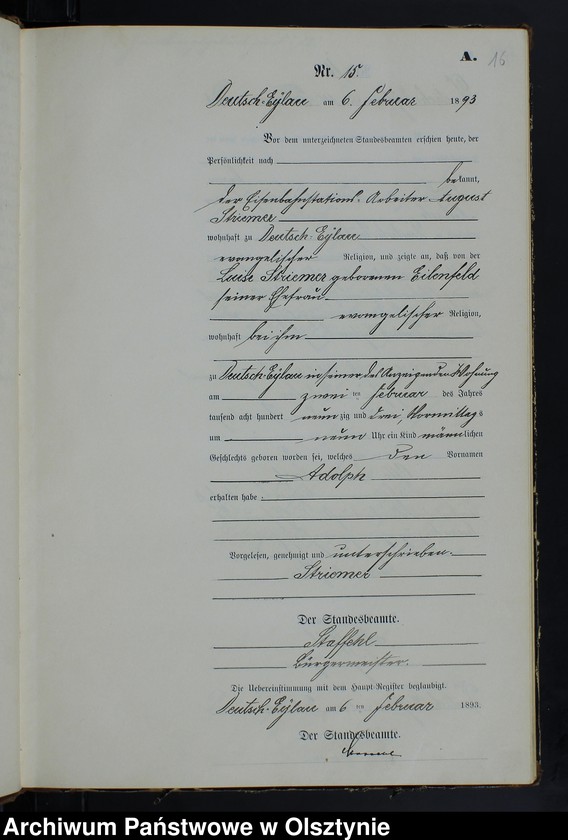 A. 16
Nr. 15.
Deutsch-Eylau am 6. Februar 1893
Vor dem unterzeichneten Standesbeamten erschien heute, der
Persönlichkeit nach
bekannt,
der Eisenbahnstations-Arbeiter August
Striemer
wohnhaft zu Deutsch-Eylau
evangelischer Religion, und zeigte an, daß von der
Luise Striemer geborenen Eilenfeld
seiner Ehefrau
evangelischer Religion,
wohnhaft bei ihm
zu Deutsch-Eylau in seiner, des Anzeigenden Wohnung
am zwei ten Februar des Jahres
tausend acht hundert neunzig und drei, Vormittags
um neun Uhr ein Kind männlichen
Geschlechts geboren worden sei, welches den Vornamen
Adolph
erhalten habe.
Vorgelesen, genehmigt und unterschrieben.
Striemer
Der Standesbeamte.
Staffehl
Bürgermeister.
Die Uebereinstimmung mit dem Haupt-Register beglaubigt.
Deutsch-Eylau am 6 ten Februar 1893.
Der Standesbeamte.
Archiwum Państwowe w Olsztynie